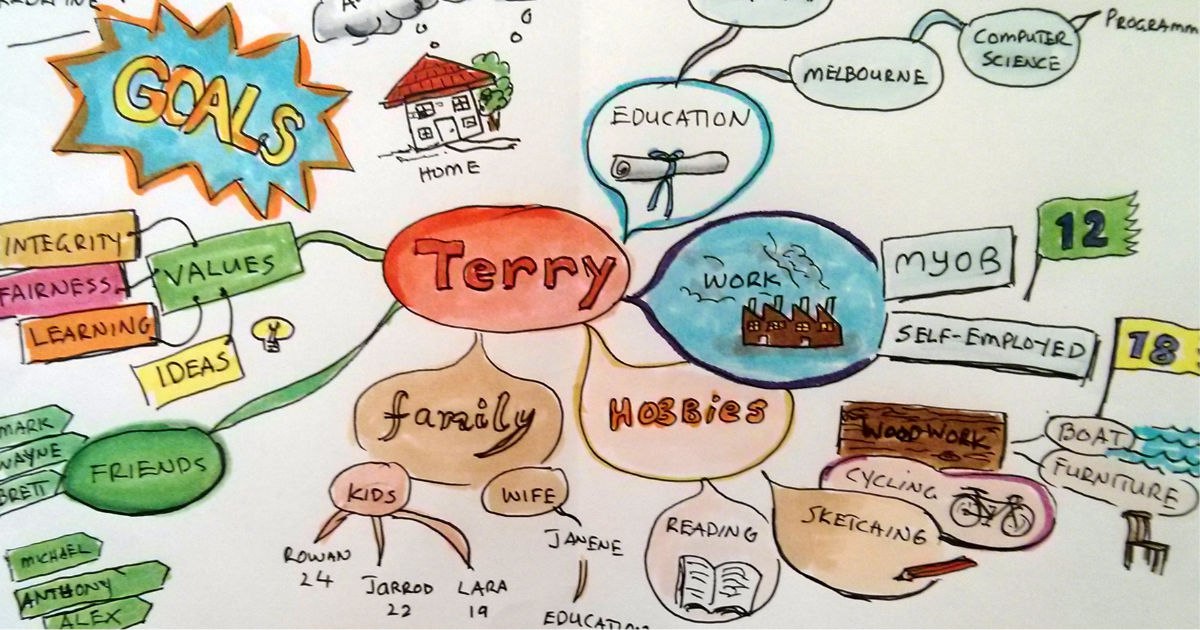 GOALS
HOME
EDUCATION
MELBOURNE
COMPUTER
SCIENCE
INTEGRITY
FAIRNESS
LEARNING
VALUES
IDEAS
Terry
WORK
MYOB
12
SELF-EMPLOYED
18
family
HOBBies
WOODWORK
BOAT
FURNITURE
CYCLING
SKETCHING
READING
FRIENDS
MARK
WAYNE
BRETT
MICHAEL
ANTHONY
ALEX
KIDS
ROWAN
24
JARROD
22
LARA
19
WIFE
JANENE